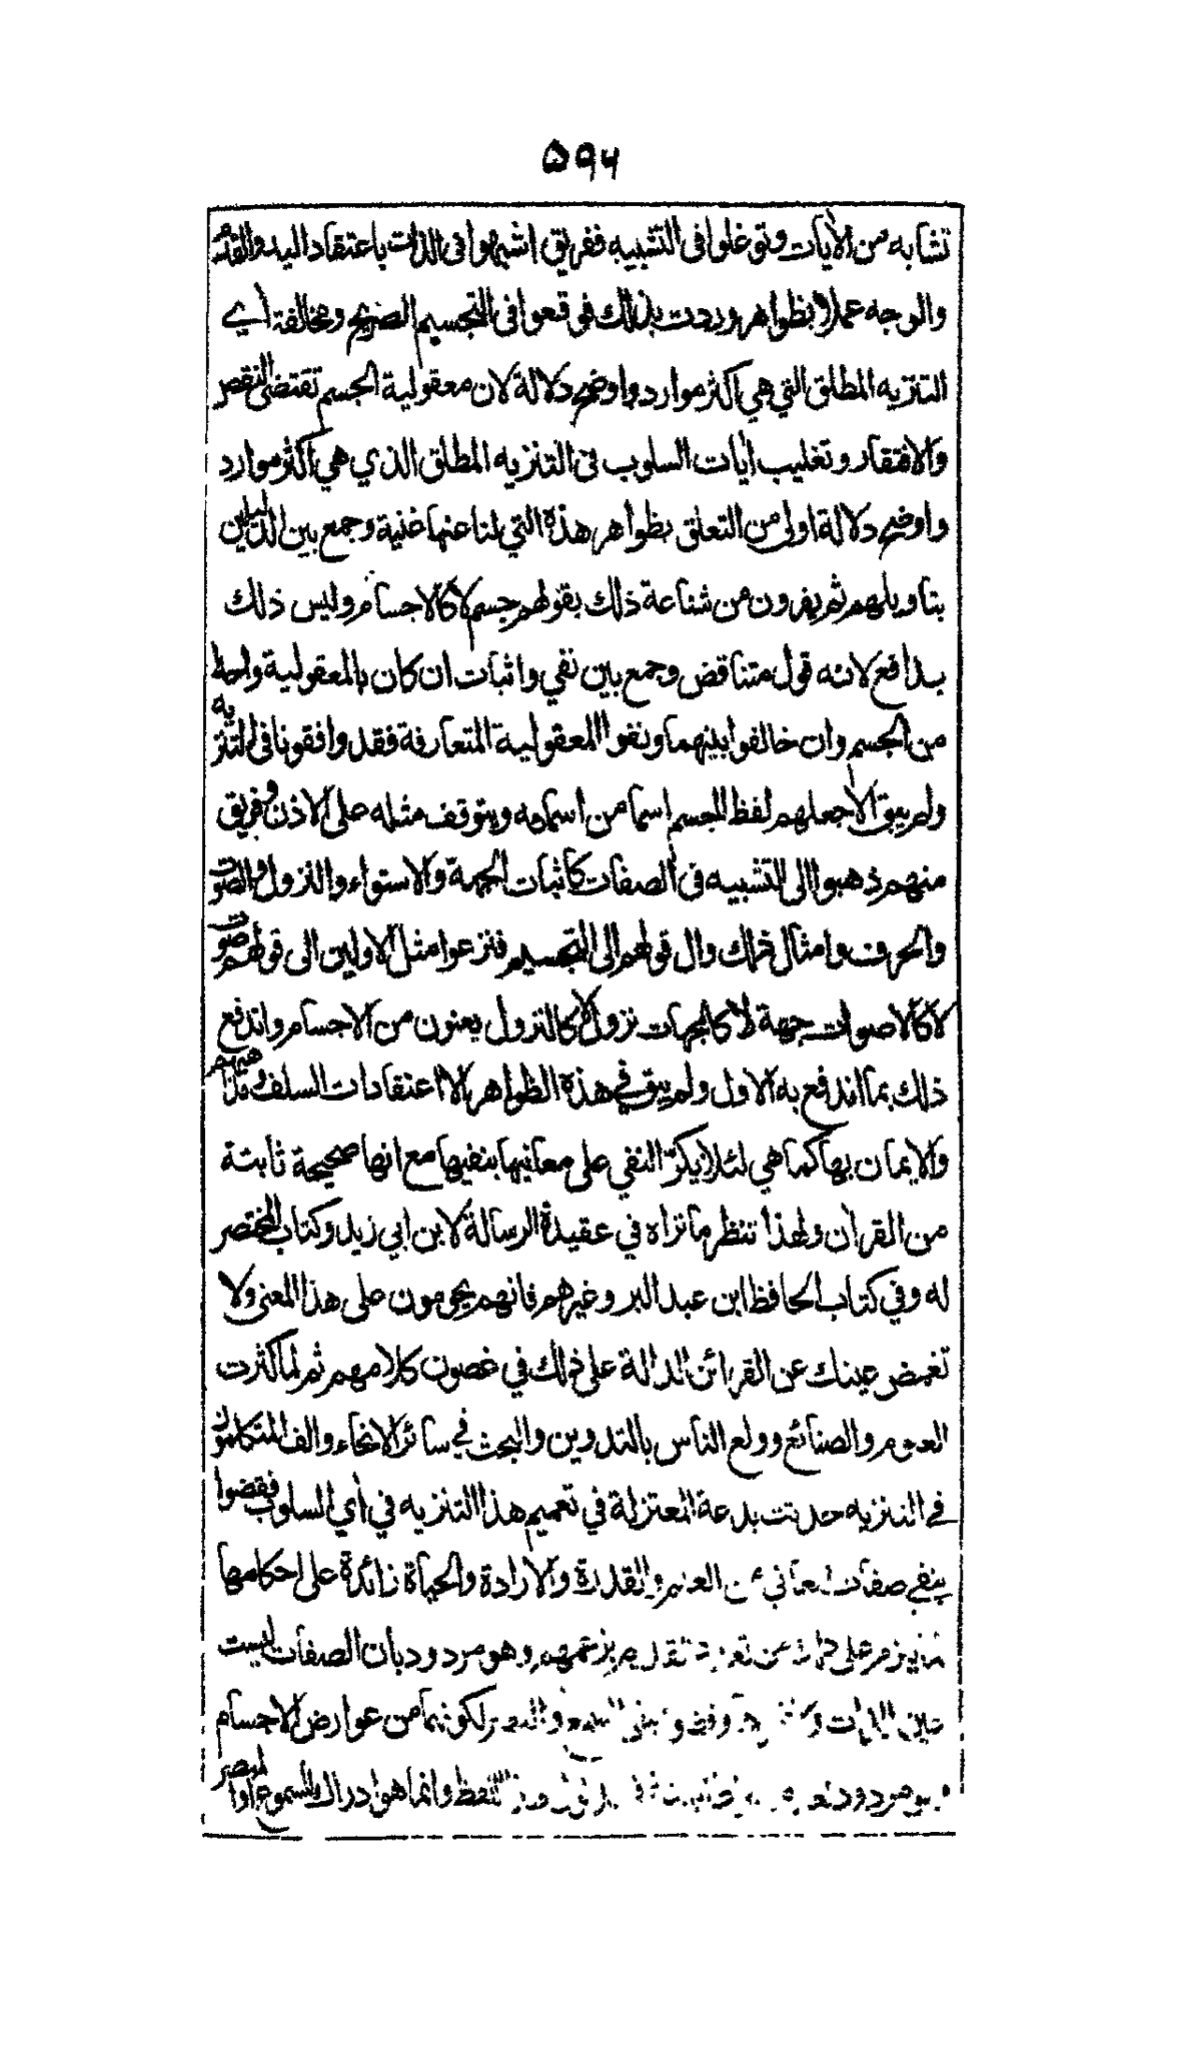 ۵۹۶
تشابه من الأيات وتوغلوا في التشبيه ففريق اشبهوا في الذات باعتقاد اليد والقدم
والوجه عملا بظواهر وردت بذلك فوقعوا في التجسيم الصريح ومخالفة أي
التنزيه المطلق التي هي اكثر موارد واوضح دلالة لان معقولية الجسم تقتضي النقص
والافتقار وتغليب أيات السلوب في التنزيه المطلق الذي هي اكثر موارد
واوضح دلالة اولى من التعلق بظواهر هذه التي لنا عنها غنية وجمع بين الدليلين
بتاويلهم ثم يفرون من شناعة ذلك بقولهم جسم لا كالاجسام وليس ذلك
بدافع لانه قول متناقض وجمع بين نفي واثبات ان كان بالمعقولية واحدة
من الجسم وان خالفوا بينهما ونفوا المعقولية المتعارفة فقد وافقونا في التنزيه
ولم يبق الا جعلهم لفظ الجسم اسما من اسمائه ويتوقف مثله على الاذن وفريق
منهم ذهبوا الى التشبيه في الصفات كاثبات الجهة والاستواء والنزول والصوت
والحرف وامثال ذلك وال قولهم الى التجسيم فنزعوا مثل الاولين الى قولهم صوت
لا كالاصوات جهة لا كالجهات نزول لا كالنزول يعنون من الاجسام واندفع
ذلك بما اندفع به الاول ولم يبق في هذه الظواهر الا اعتقادات السلف ومذاهبهم
والايمان بها كما هي لئلا يكرّ النفي على معانيها بنفيها مع انها صحيحة ثابتة
من القرأن ولهذا تنظر ما تراه في عقيدة الرسالة لابن ابي زيد وكتاب المختصر
له وفي كتاب الحافظ ابن عبد البر وغيرهم فانهم يحومون على هذا المعنى ولا
تغمض عينك عن القرائن الدالة على ذلك في غصون كلامهم ثم لما كثرت
العلوم والصنائع وولع الناس بالتدوين والبحث في سائر الانحاء والف المتكلمون
في التنزيه حدثت بدعة المعتزلة في تعميم هذا التنزيه في أي السلوب فقضوا
بنفي صفات المعاني من العلم والقدرة والارادة والحياة زائدة على احكامها
لما يلزم على ذلك من تعدد القديم بزعمهم وهو مردود بان الصفات ليست
عين الذات ولا وقضوا بنفي السمع والبصر لكونهما من عوارض الاجسام
وهو مردود اللفظ وانما هو ادراك المسموع او المبصر